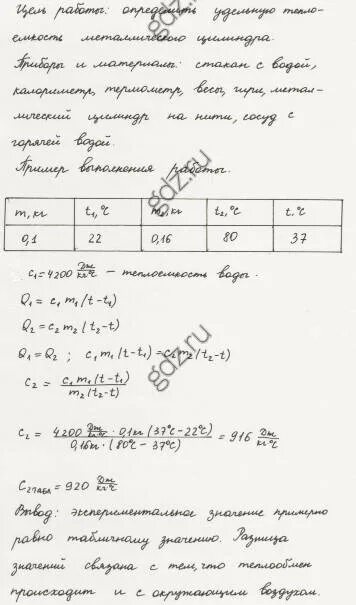 Цель работы: определить удельную тепло-
емкость металлического цилиндра.
Приборы и материалы: стакан с водой,
калориметр, термометр, весы, гири, метал-
лический цилиндр на нити, сосуд с
горячей водой.
Пример выполнения работы.
m, кг t₁, °C m₂, кг t₂, °C t, °C
0,1 22 0,16 80 37
c₁ = 4200 Дж/кг°C – теплоемкость воды.
Q₁ = c₁ m₁ (t - t₁)
Q₂ = c₂ m₂ (t₂ - t)
Q₁ = Q₂ ; c₁ m₁ (t - t₁) = c₂ m₂ (t₂ - t)
c₂ = c₁ m₁ (t - t₁) / m₂ (t₂ - t)
c₂ = 4200 Дж/кг°C · 0,1кг (37°C - 22°C) / 0,16кг · (80°C - 37°C) = 916 Дж/кг°C
c₂ табл = 920 Дж/кг°C
Вывод: экспериментальное значение примерно
равно табличному значению. Разница
значений связана с тем, что теплообмен
происходит и с окружающим воздухом.
gdz.ru
gdz.ru